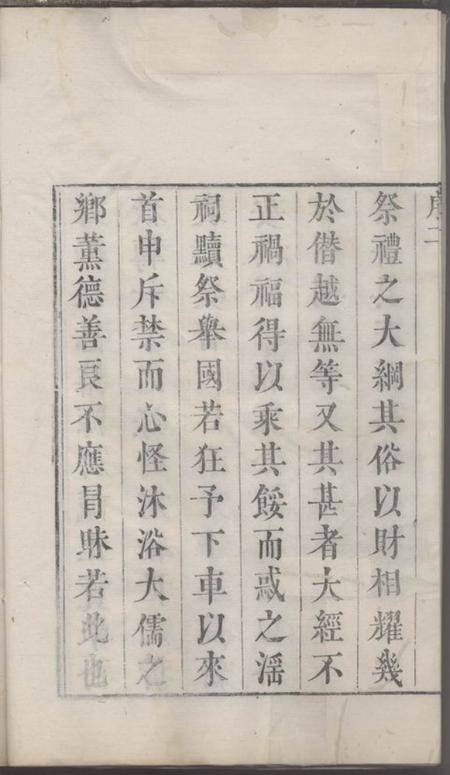 序二
祭禮之大綱其俗以財相耀幾
於僭越無等又其甚者大經不
正禍福得以乘其餒而惑之滛
祠黷祭舉國若狂予下車以來
首申斥禁而心怪沐浴大儒之
鄉薰德善良不應冐昧若此也